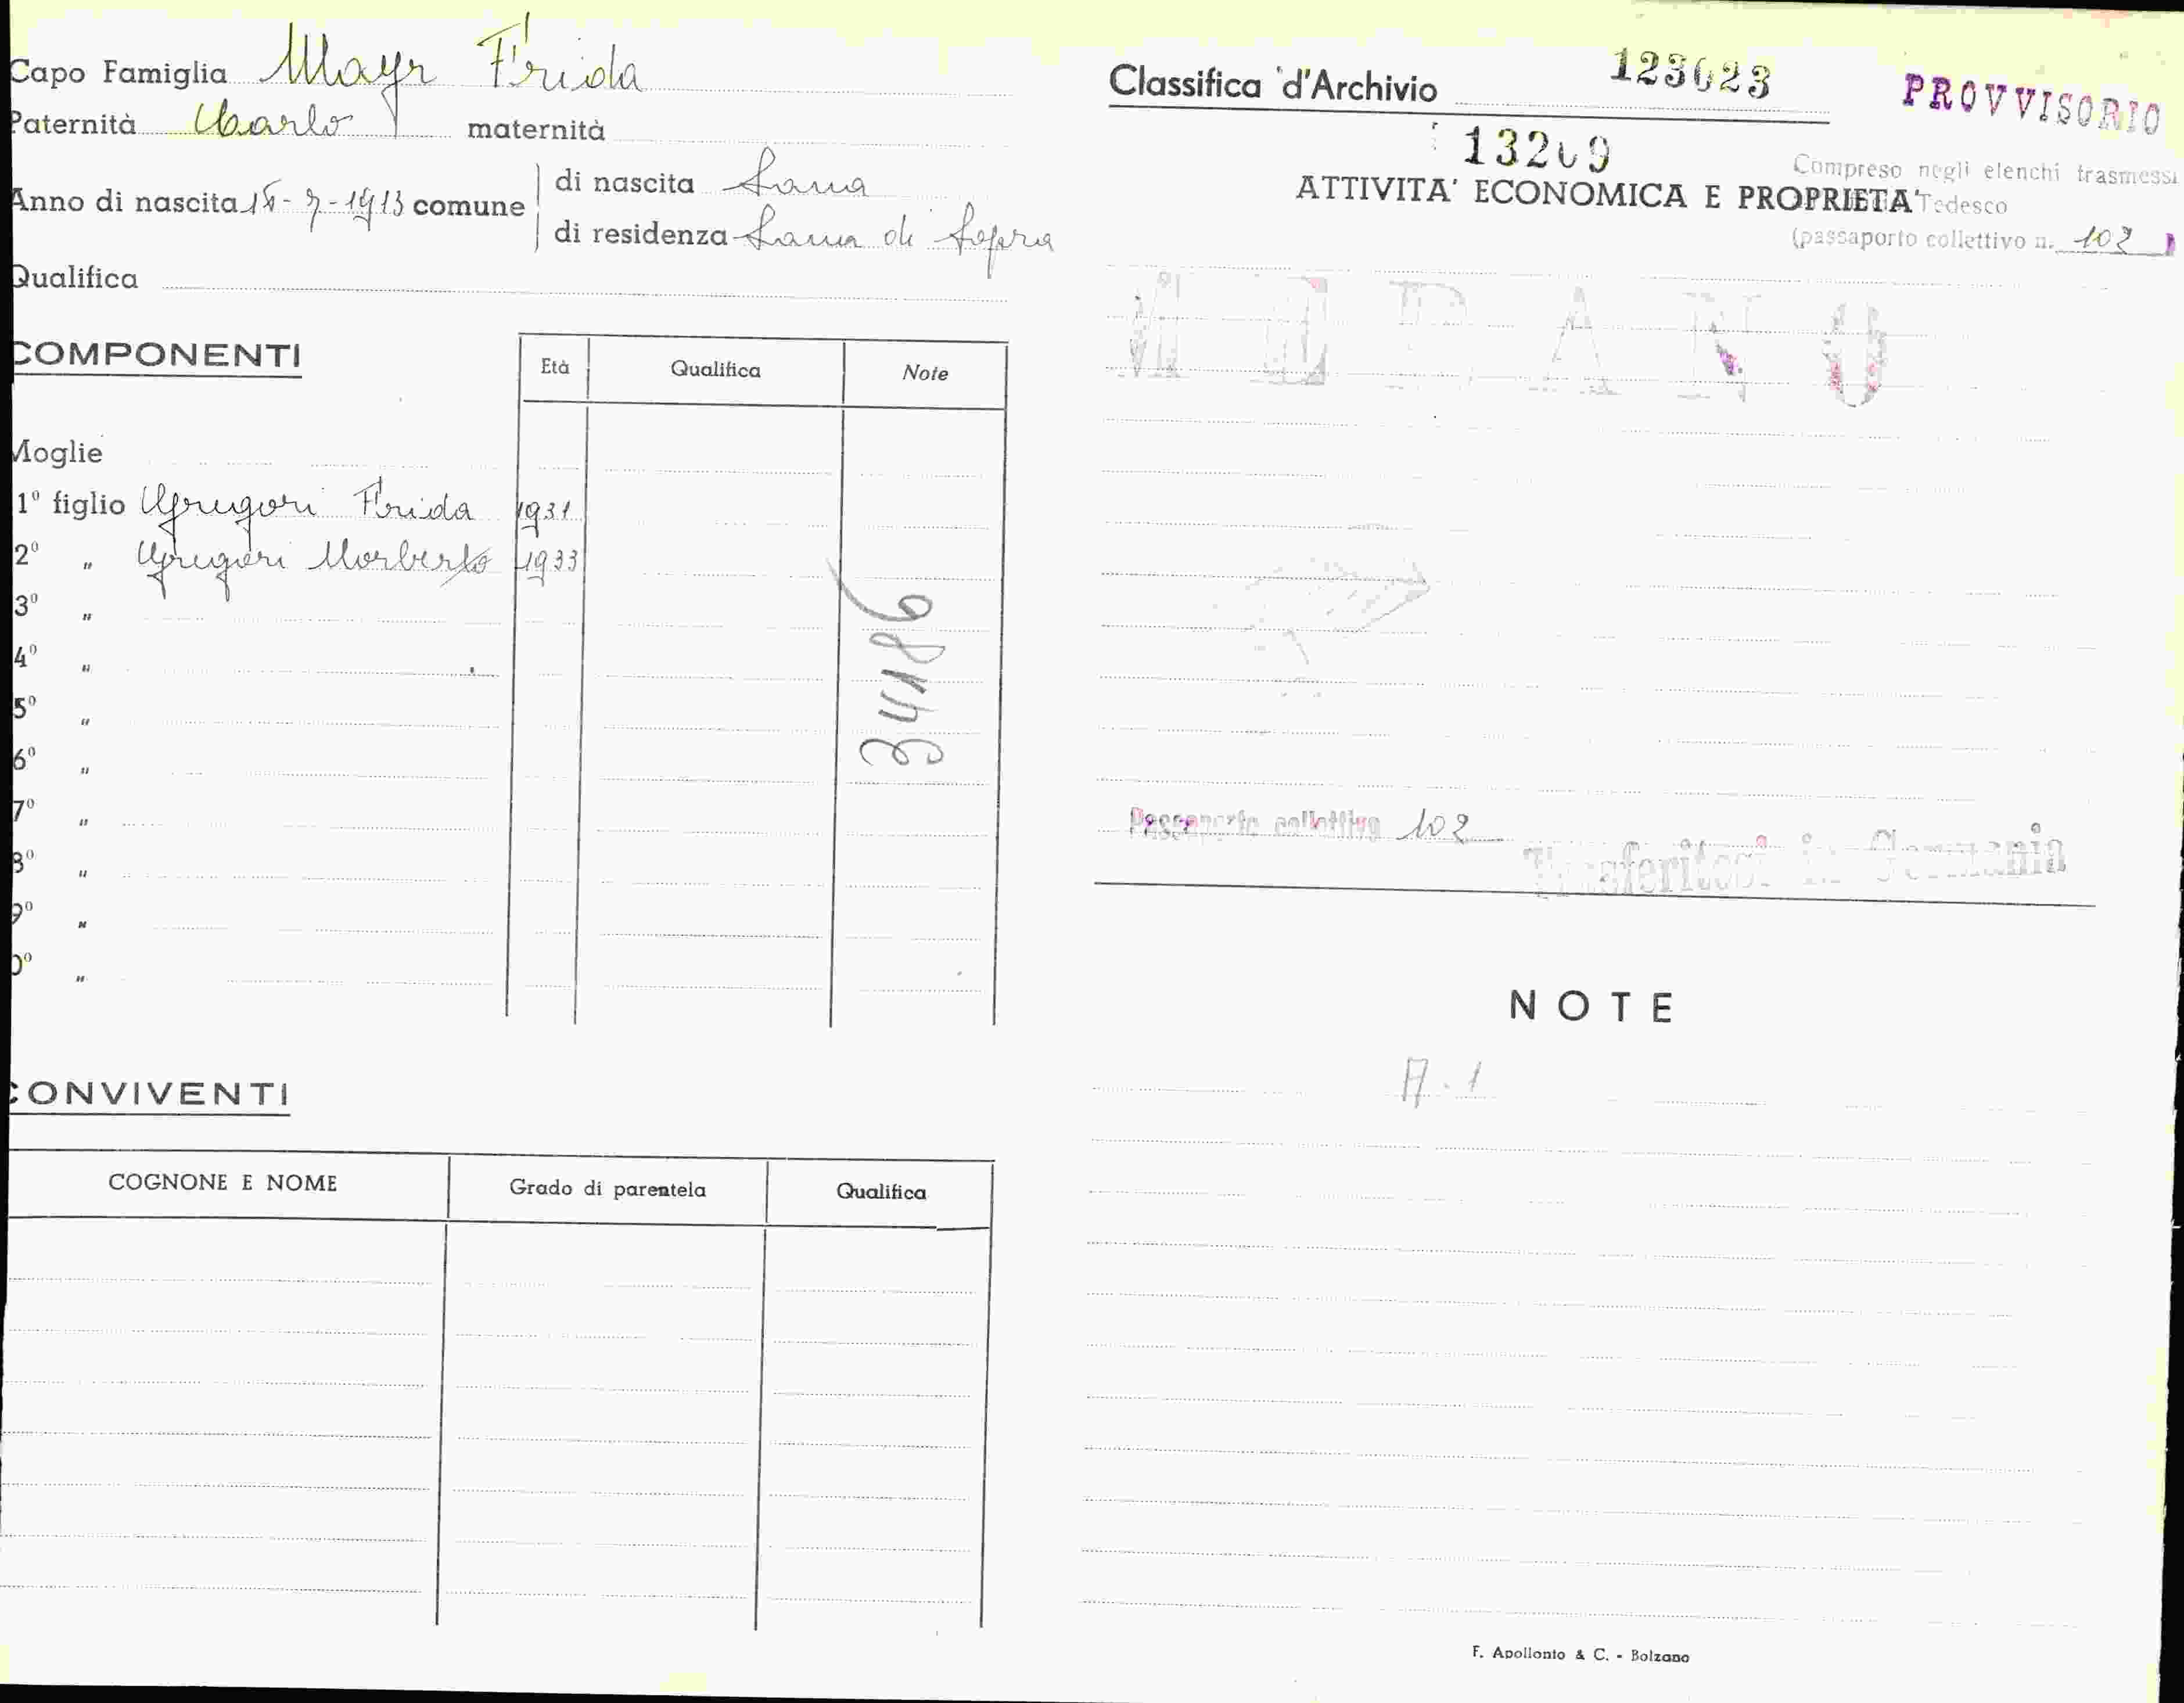 Capo Famiglia Mayr Frida
Paternità Carlo maternità
Anno di nascita -7-1913 comune
di nascita Lana
di residenza Lana di Sopra
Qualifica
COMPONENTI
Età Qualifica Note
Moglie
1° figlio Gregori Frida 1931
2° „ Gregori Norberto 1933
3° „
4° „
5° „
6° „
7° „
8° „
9° „
0° „
34186
CONVIVENTI
COGNONE E NOME Grado di parentela Qualifica
Classifica d'Archivio 123623
PROVVISORIO
13209
Compreso negli elenchi trasmessi
ATTIVITA' ECONOMICA E PROPRIETA'
Tedesco
(passaporto collettivo n. 102
MERANO
Passaporto collettivo 102
Trasferitosi in Germania
NOTE
A.1
F. Apollonio & C. - Bolzano